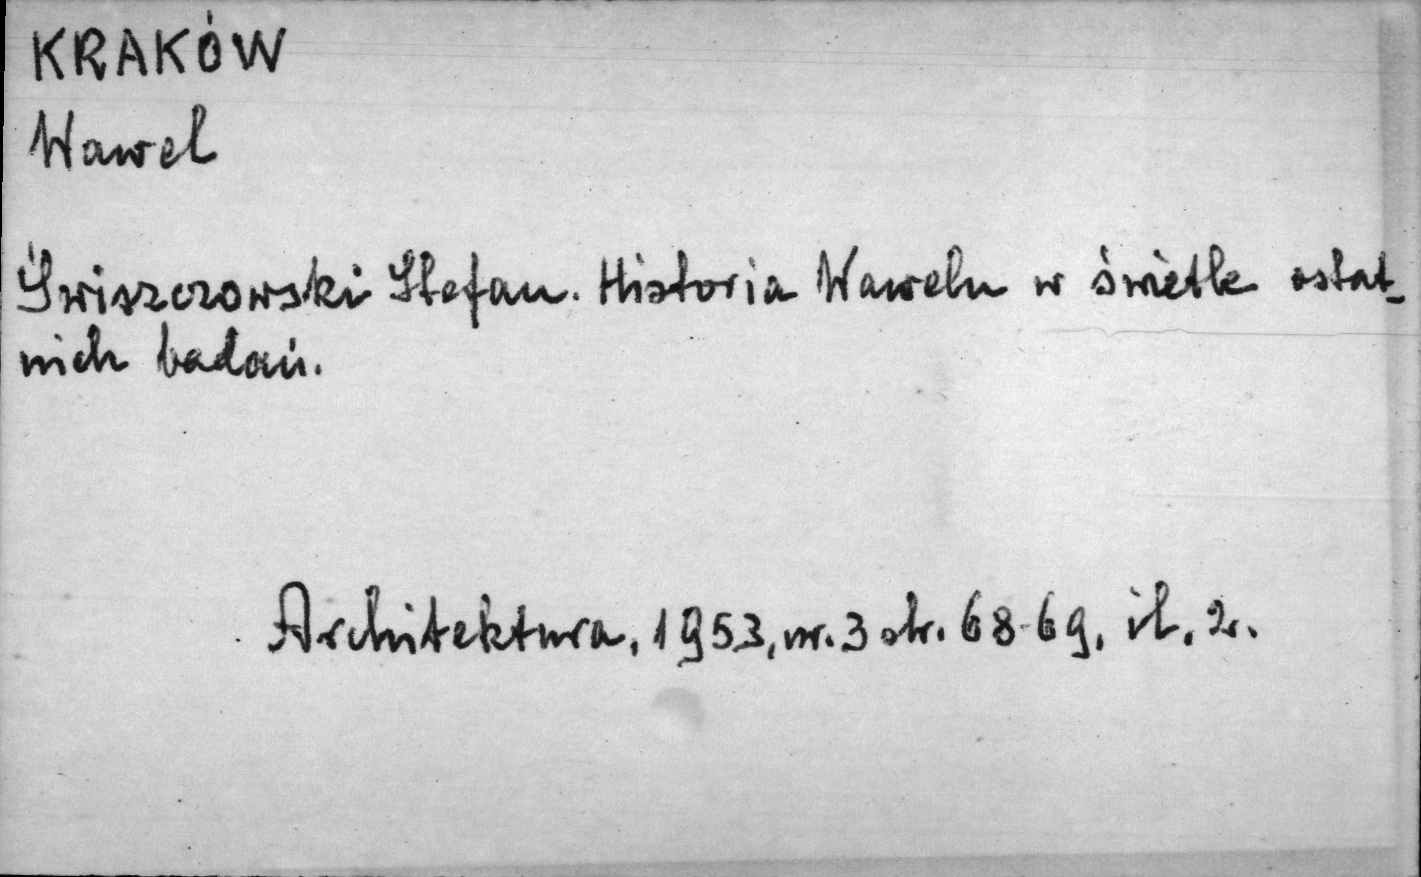 KRAKÓW
Wawel
Świszczowski Stefan. Historia Wawelu w świetle ostat-
nich badań.
Architektura, 1953, nr. 3 str. 68-69, il. 2.